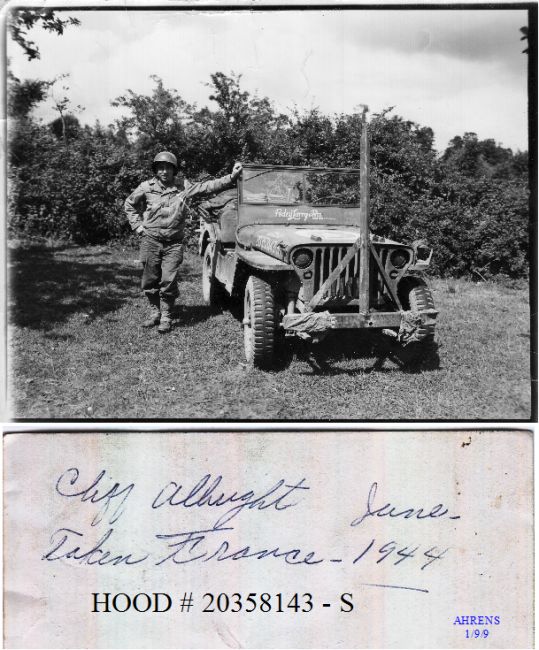 Cliff Albright June -
Taken France - 1944
HOOD # 20358143 - S
AHRENS
1/9/9